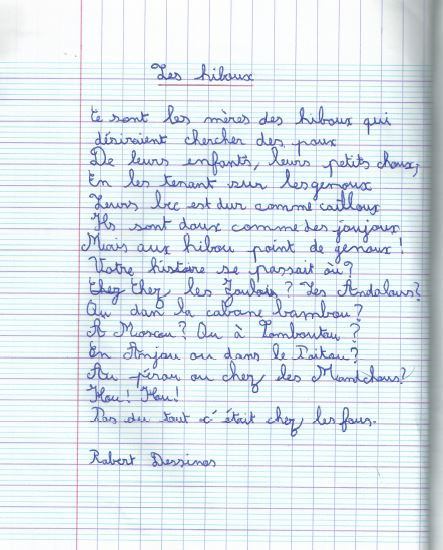 Les hiboux
Ce sont les mères des hiboux qui
désiraient chercher des poux
De leurs enfants, leurs petits choux,
En les tenant sur les genoux
Leurs bec est dur comme cailloux
Ils sont doux comme des joujoux
Mais aux hibou point de genoux !
Votre histoire se passait où ?
Chez les Zoulous ? Les Andalous ?
Ou dan la cabane bambou ?
A Moscou ? Ou à Tombouctou ?
En Anjou ou dans le Poitou ?
Au pérou ou chez des Mandchous ?
Hou ! Hou !
Pas du tout c'était chez les fous.
Robert Dessinos